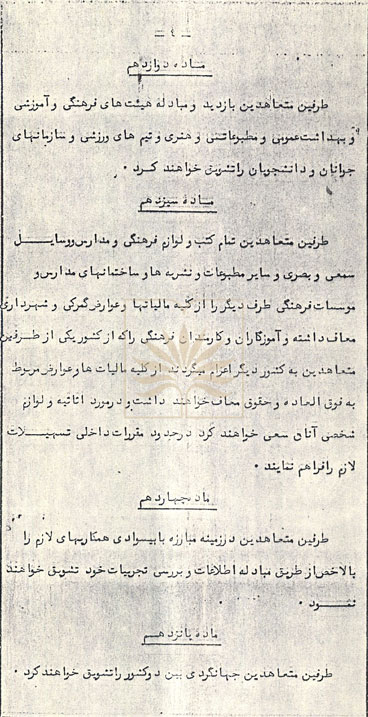 - ٤ -
ماده دوازدهم
طرفین متعاهدین بازدید و مبادله هیئت های فرهنگی و آموزشی
و بهداشت عمومی و مطبوعاتی و هنری و تیم های ورزشی و سازمانهای
جوانان و دانشجویان را تشویق خواهند کرد .
مادهٔ سیزدهم
طرفین متعاهدین تمام کتب و لوازم فرهنگی و مدارس و وسایل
سمعی و بصری و سایر مطبوعات و نشریه ها و ساختمانهای مدارس و
موسسات فرهنگی طرف دیگر را از کلیه مالیاتها و عوارض گمرکی و شهرداری
معاف داشته و آموزگاران و کارمندان فرهنگی را که از کشور یکی از طرفین
متعاهدین به کشور دیگر اعزام میگردند از کلیه مالیات ها و عوارض مربوط
به فوق العاده و حقوق معاف خواهند داشت و در مورد اثاثیه و لوازم
شخصی آنان سعی خواهند کرد در حدود مقررات داخلی تسهیلات
لازم را فراهم نمایند .
ماده چهاردهم
طرفین متعاهدین در زمینه مبارزه با بیسوادی همکاریهای لازم را
بالاخص از طریق مبادله اطلاعات و بررسی تجربیات خود تشویق خواهند
نمود .
مادهٔ پانزدهم
طرفین متعاهدین جهانگردی بین دو کشور را تشویق خواهند کرد .